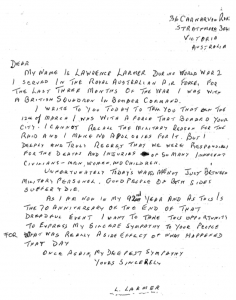 36 CAERNARVON RD
STRATHMORE 3041
VICTORIA
AUSTRALIA
DEAR
MY NAME IS LAWRENCE LARMER DURING WORLD WAR 2
I SERVED IN THE ROYAL AUSTRALIAN AIR FORCE, FOR
THE LAST THREE MONTHS OF THE WAR I WAS WITH
A BRITISH SQUADRON IN BOMBER COMMAND.
I WRITE TO YOU TODAY TO TELL YOU THAT ON THE
12TH OF MARCH I WAS WITH A FORCE THAT BOMBED YOUR
CITY. I CANNOT RECALL THE MILITARY REASON FOR THE
RAID AND I MAKE NO APOLOGIES FOR IT. BUT I
DEEPLY AND TRULY REGRET THAT WE WERE RESPONSIBLE
FOR THE DEATHS AND INJURIES OF SO MANY INNOCENT
CIVILIANS MEN, WOMEN, AND CHILDREN.
UNFORTUNATELY TODAY'S WARS ARE NOT JUST BETWEEN
MILITARY PERSONNEL. GOOD PEOPLE OF BOTH SIDES
SUFFER & DIE.
AS I AM NOW IN MY 92ND YEAR AND AS THIS IS
THE 70 ANNIVERSARY OF THE END OF THAT
DREADFUL EVENT I WANT TO TAKE THIS OPPORTUNITY
TO EXPRESS MY SINCERE SYMPATHY TO YOUR PEOPLE
FOR WHAT WAS REALLY A SIDE EFFECT OF WHAT HAPPENED
THAT DAY
ONCE AGAIN, MY DEEPEST SYMPATHY
YOURS SINCERELY
L. LARMER